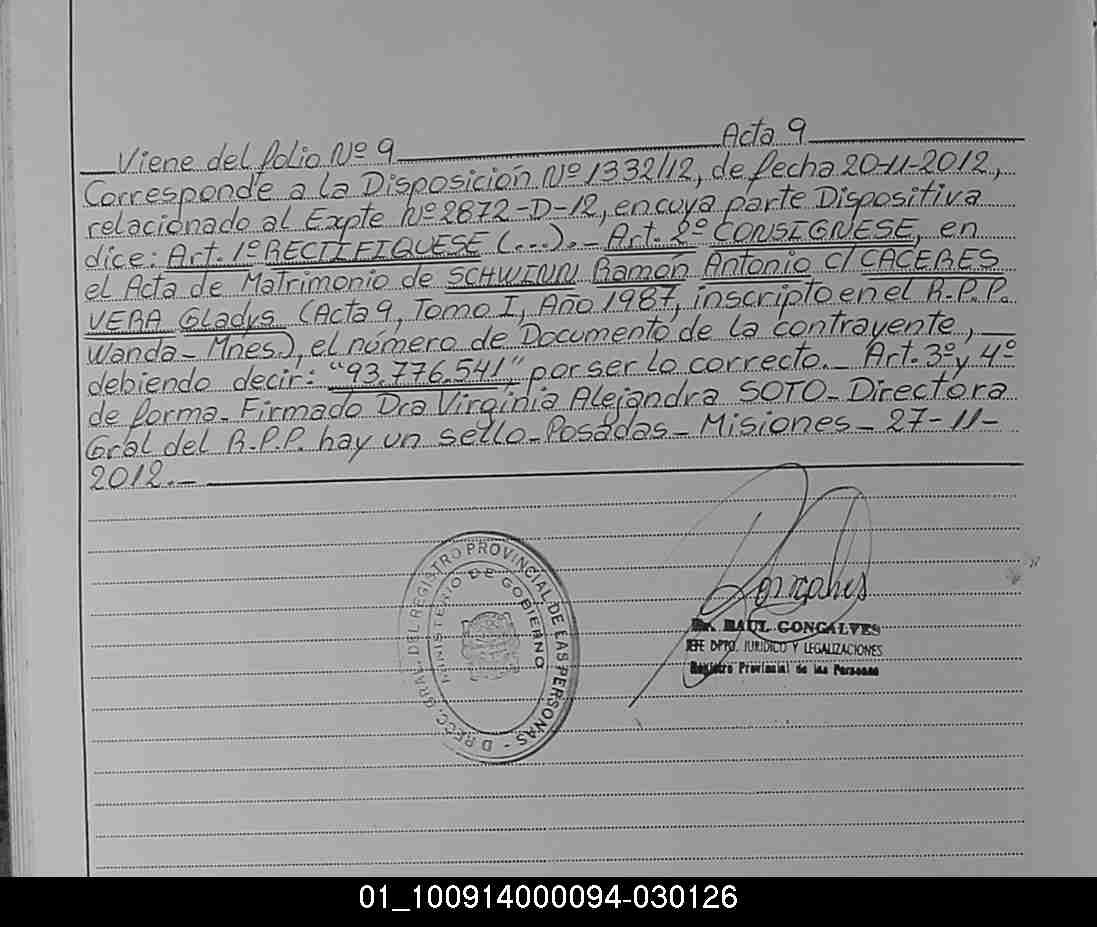 Viene del folio Nº 9 Acta 9
Corresponde a la Disposición Nº 1332/12, de fecha 20-11-2012,
relacionado al Expte Nº 2872-D-12, en cuya parte Dispositiva
dice: Art. 1º RECTIFIQUESE (...).- Art. 2º CONSIGNESE, en
el Acta de Matrimonio de SCHWINN Ramón Antonio c/ CACERES
VERA Gladys (Acta 9, Tomo I, Año 1987, inscripto en el R.P.P.
Wanda - Mnes), el número de Documento de la contrayente,
debiendo decir: "93.776.541" por ser lo correcto.- Art. 3º y 4º
de forma. Firmado Dra Virginia Alejandra SOTO - Directora
Gral del R.P.P. hay un sello - Posadas - Misiones - 27-11-
2012.-
DIRECC. GRAL. DEL REGISTRO PROVINCIAL DE LAS PERSONAS -
MINISTERIO DE GOBIERNO
Gonçalves
Dr. RAUL GONCALVES
JEFE DPTO. JURIDICO Y LEGALIZACIONES
Registro Provincial de las Personas
01_100914000094-030126